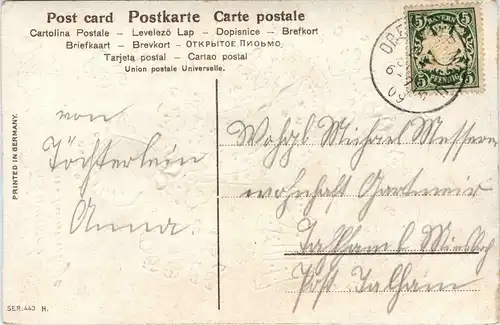 Post card Postkarte Carte postale
Cartolina Postale – Levelező Lap – Dopisnice – Brefkort
Briefkaart – Brevkort – ОТКРЫТОЕ ПИСЬМО.
Tarjeta postal – Cartao postal
Union postale Universelle.
BAYERN
5 5
5 5
PFENNIG
09
PRINTED IN GERMANY.
von
Töchterlein
Anna.
Wohlgb Michael Messerer
wohnhaft
Post Talham
SER. 443 H.